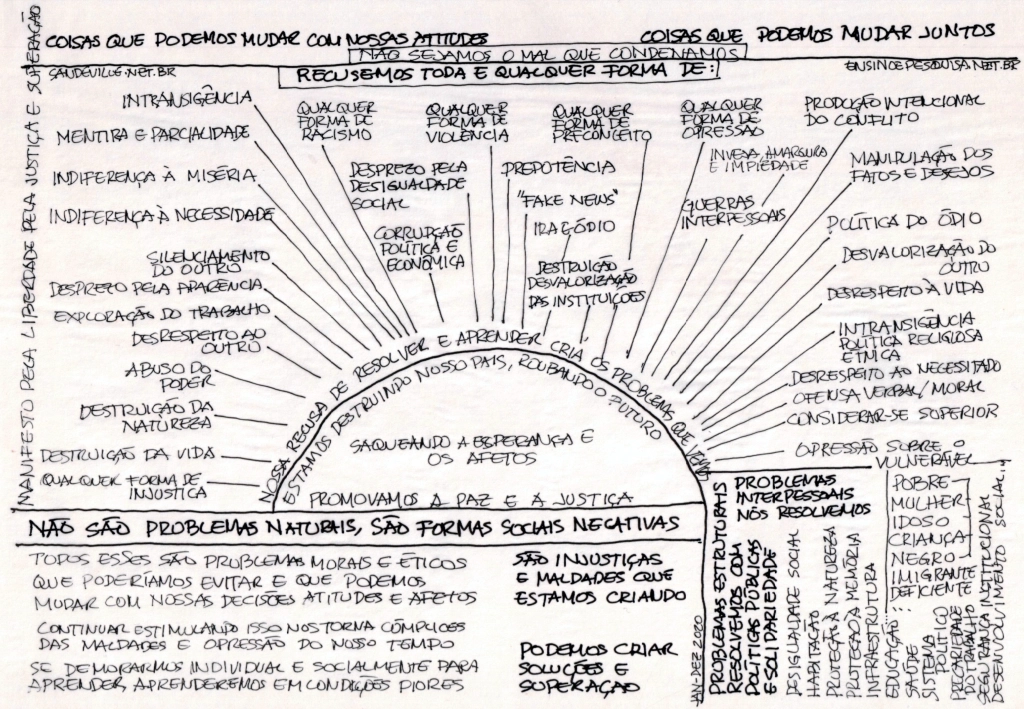 MANIFESTO PEGA LIBERDADE PELA JUSTIÇA E SUPERAÇÃO
COISAS QUE PODEMOS MUDAR COM NOSSAS ATITUDES
COISAS QUE PODEMOS MUDAR JUNTOS
NÃO SEJAMOS O MAL QUE CONDENAMOS
SANDEVILLE.NET.BR
RECUSEMOS TODA E QUALQUER FORMA DE:
ENSINOEPESQUISA.NET.BR
INTRANSIGÊNCIA
MENTIRA E PARCIALIDADE
INDIFERENÇA À MISÉRIA
INDIFERENÇA À NECESSIDADE
SILENCIAMENTO
DO OUTRO
DESPREZO PELA APARÊNCIA
EXPLORAÇÃO DO TRABALHO
DESRESPEITO AO
OUTRO
ABUSO DO
PODER
DESTRUIÇÃO DA
NATUREZA
DESTRUIÇÃO DA VIDA
QUALQUER FORMA DE
INJUSTIÇA
QUALQUER
FORMA DE
RACISMO
DESPREZO PELA
DESIGUALDADE
SOCIAL
CORRUPÇÃO
POLÍTICA E
ECONÔMICA
QUALQUER
FORMA DE
VIOLÊNCIA
PREPOTÊNCIA
"FAKE NEWS"
IRA E ÓDIO
DESTRUIÇÃO
DESVALORIZAÇÃO
DAS INSTITUIÇÕES
QUALQUER
FORMA DE
PRECONCEITO
QUALQUER
FORMA DE
OPRESSÃO
INVEJA, AMARGURA
E IMPIEDADE
GUERRAS
INTERPESSOAIS
PRODUÇÃO INTENCIONAL
DO CONFLITO
MANIPULAÇÃO DOS
FATOS E DESEJOS
POLÍTICA DO ÓDIO
DESVALORIZAÇÃO DO
OUTRO
DESRESPEITO À VIDA
INTRANSIGÊNCIA
POLÍTICA RELIGIOSA
ÉTNICA
DESRESPEITO AO NECESSITADO
OFENSA VERBAL/MORAL
CONSIDERAR-SE SUPERIOR
OPRESSÃO SOBRE O
VULNERÁVEL
POBRE
MULHER
IDOSO
CRIANÇA
NEGRO
IMIGRANTE
DEFICIENTE
NOSSA RECUSA DE RESOLVER E APRENDER CRIA OS PROBLEMAS QUE TEMOS
ESTAMOS DESTRUINDO NOSSO PAÍS, ROUBANDO O FUTURO
SAQUEANDO A ESPERANÇA E
OS AFETOS
PROMOVAMOS A PAZ E A JUSTIÇA
NÃO SÃO PROBLEMAS NATURAIS, SÃO FORMAS SOCIAIS NEGATIVAS
TODOS ESSES SÃO PROBLEMAS MORAIS E ÉTICOS
QUE PODERÍAMOS EVITAR E QUE PODEMOS
MUDAR COM NOSSAS DECISÕES ATITUDES E AFETOS
CONTINUAR ESTIMULANDO ISSO NOS TORNA CÚMPLICES
DAS MALDADES E OPRESSÃO DO NOSSO TEMPO
SE DEMORARMOS INDIVIDUAL E SOCIALMENTE PARA
APRENDER, APRENDEREMOS EM CONDIÇÕES PIORES
SÃO INJUSTIÇAS
E MALDADES QUE
ESTAMOS CRIANDO
PODEMOS CRIAR
SOLUÇÕES E
SUPERAÇÃO
JAN-DEZ 2020
PROBLEMAS
INTERPESSOAIS
NÓS RESOLVEMOS
PROBLEMAS ESTRUTURAIS
RESOLVEMOS COM
POLÍTICAS PÚBLICAS
E SOLIDARIEDADE
DESIGUALDADE SOCIAL
HABITAÇÃO
PROTEÇÃO À NATUREZA
PROTEÇÃO À MEMÓRIA
INFRAESTRUTURA
EDUCAÇÃO...
SAÚDE
SISTEMA
POLÍTICO
PRECARIEDADE
DO TRABALHO
SEGURANÇA INSTITUCIONAL
DESENVOLVIMENTO SOCIAL...